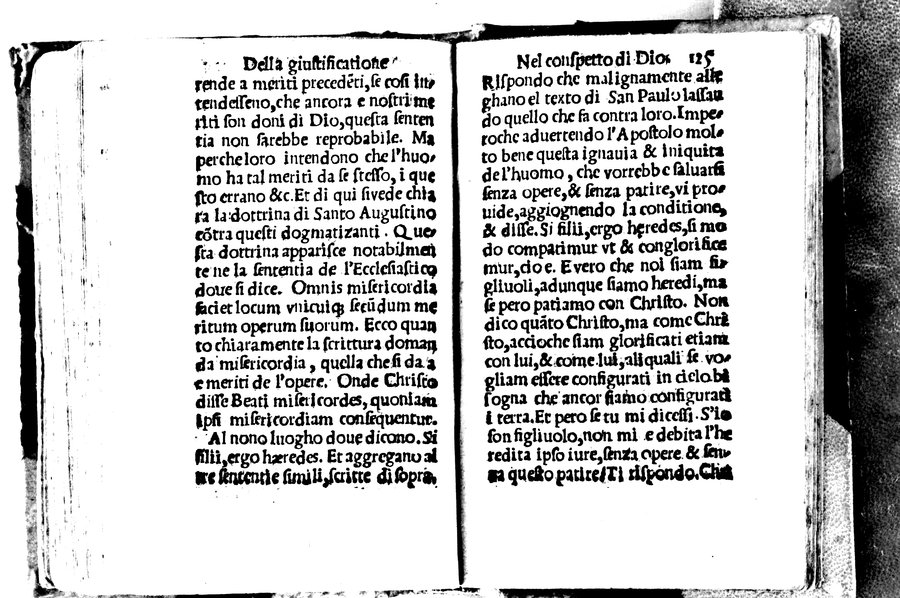 Della giustificatione
rende a meriti precedẽti, se cosi in⸗
tendesseno, che ancora e nostri me
riti son doni di Dio, questa senten
tia non sarebbe reprobabile. Ma
perche loro intendono che l'huo⸗
mo ha tal meriti da se stesso, i que
sto errano &c. Et di qui si vede chia
ra la dottrina di Santo Augustino
cõtra questi dogmatizanti. Que⸗
sta dottrina apparisce notabilmen
te ne la sententia de l'Ecclesiastico
doue si dice. Omnis misericordia
faciet locum vnicuiq; secũdum me
ritum operum suorum. Ecco quan
to chiaramente la scrittura doman
da misericordia, quella che si da a
e meriti de l'opere. Onde Christo
disse Beati misericordes, quoniam
ipsi misericordiam consequentur.
Al nono luogho doue dicono. Si
filii, ergo hæredes. Et aggregano al
tre sententie simili, scritte di sopra,
Nel conspetto di Dio. 125
Rispondo che malignamente alle
ghano el texto di San Paulo lassan
do quello che fa contra loro. Impe⸗
roche aduertendo l'Apostolo mol⸗
to bene questa ignauia & iniquita
de l'huomo, che vorrebbe saluarsi
senza opere, & senza patire, vi pro⸗
uide, aggiognendo la conditione,
& disse. Si filii, ergo heredes, si mo
do compatimur vt & conglorifice
mur, cioe. E vero che noi siam fi⸗
gliuoli, adunque siamo heredi, ma
se pero patiamo con Christo. Non
dico quãto Christo, ma come Chri
sto, accioche siam glorificati etiam
con lui, & come lui, al quali se vo⸗
gliam essere configurati in cielo bi
sogna che ancor siamo configurati
i terra. Et pero se tu mi dicessi. S'io
son figliuolo, non mi e debita l'he
redita ipso iure, senza opere & sen⸗
za questo patire? Ti rispondo. Chri